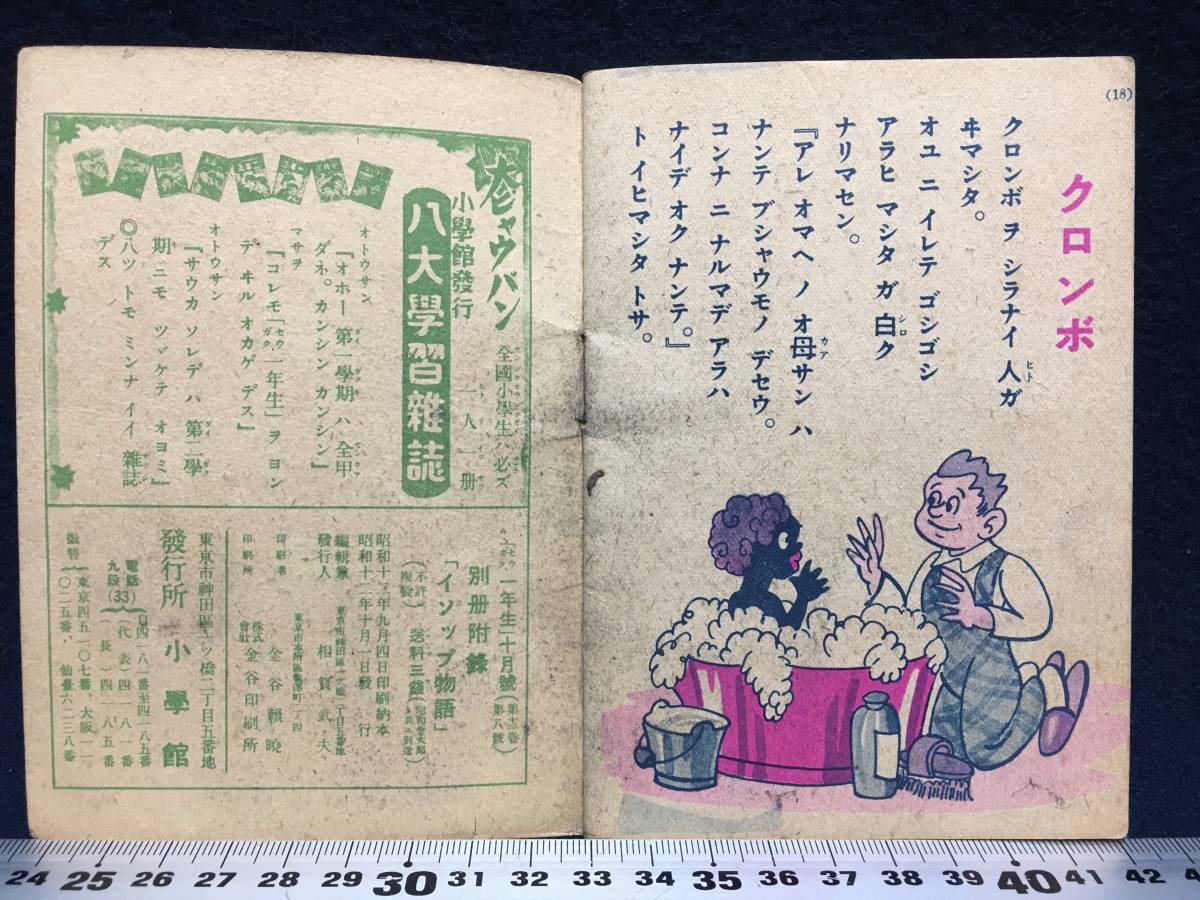 (18)
クロンボ
クロンボ ヲ シラナイ 人ガ
ヒト
ヰマシタ。
オユ ニ イレテ ゴシゴシ
アラヒ マシタ ガ 白ク
シロ
ナリマセン。
『アレ オマヘ ノ オ母サン ハ
カア
ナンテ ブシャウモノ デセウ。
コンナ ニ ナルマデ アラハ
ナイデ オク ナンテ。』
ト イヒマシタ トサ。
全國小學生ハ必ズ
一人一册
小學館發行
八大學習雜誌
オトウサン
『オホー 第一學期 ハ 全甲
ダネ。カンシン カンシン』
マサヲ
『コレモ「セウガク一年生」ヲ ヨン
デ ヰル オカゲ デス』
オトウサン
『サウカ ソレデハ 第二學
期 ニモ ツヾケテ オヨミ』
◎八ツ トモ ミンナ イイ 雜誌
デス
セウガク一年生 十月號
別册附錄
「イソップ物語」
(不許複製)
送料三錢
昭和十二年十月一日發行
編輯兼
發行人
相賀武夫
印刷者
金谷
印刷所
株式會社
金谷印刷所
東京市神田區一ツ橋二丁目五番地
發行所 小學館
電話
九段(33)
振替
24 25 26 27 28 29 30 31 32 33 34 35 36 37 38 39 40 41 42